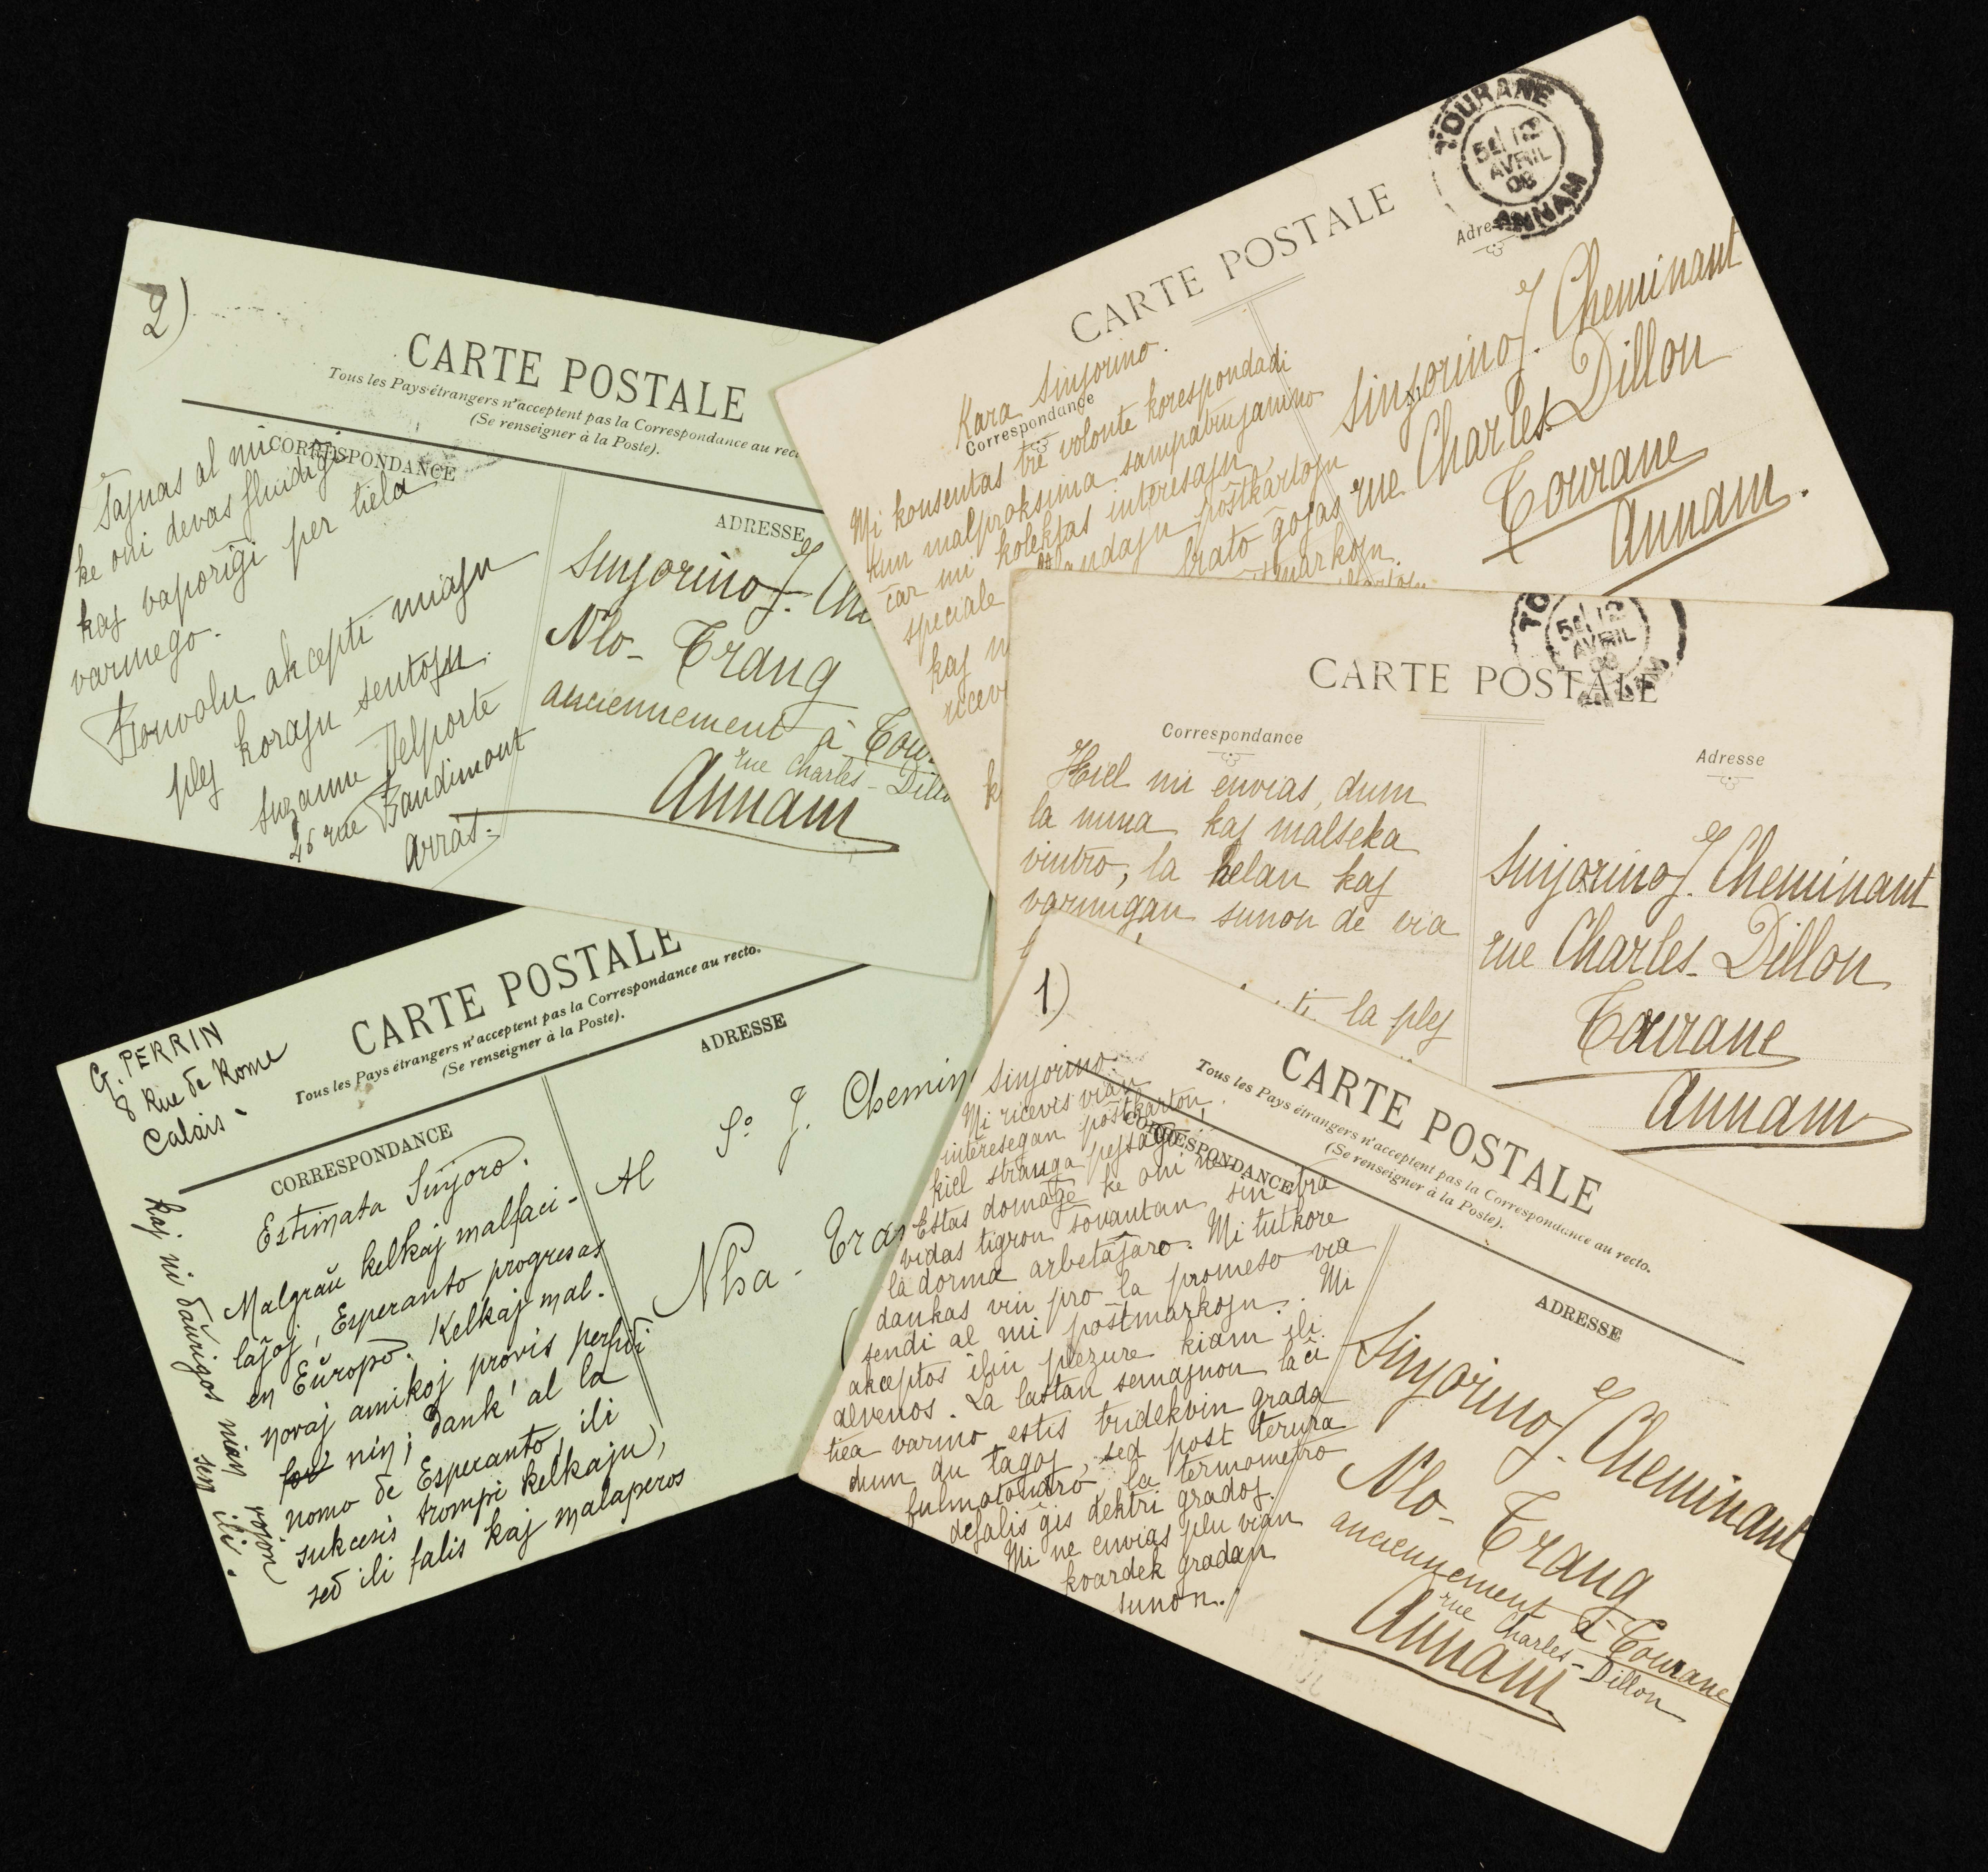 2)
CARTE POSTALE
Tous les Pays étrangers n'acceptent pas la Correspondance au rec
(Se renseigner à la Poste).
CORRESPONDANCE
ŝajnas al mi
ke oni devas fluidiĝi
kaj vaporiĝi per tiela
varmego.
Bonvolu akcepti miajn
plej korajn sentojn.
Suzanne Delporte
46 rue Baudimont
Arras.
ADRESSE
Sinjorino J. Che
Nlo-Trang
anciennement à Tour
rue Charles-Dillo
Annam
CARTE POSTALE
TOURANE
5E 12
AVRIL
08
ANNAM
Adre
Kara Sinjorino.
Correspondance
Mi konsentas tre volonte korespondadi
kun malproksima sampatrujanino
ĉar mi kolektas interesajn,
speciale landajn poŝtkartojn
kaj brato ĝojas
ricev tmarkojn.
k
Sinjorino J. Cheminant
rue Charles Dillon
Tourane
Annam.
CARTE POSTALE
TO
5E 12
AVRIL
08
Correspondance
Kiel mi envias, dum
la nuna kaj malseka
vintro, la helan kaj
varmigan sunon de via
la plej
Adresse
Sinjorino J. Cheminant
rue Charles-Dillon
Tourane
Annam
G. PERRIN
8 Rue de Rome
Calais
CARTE POSTALE
Tous les Pays étrangers n'acceptent pas la Correspondance au recto.
(Se renseigner à la Poste).
CORRESPONDANCE
Estimata Sinjoro.
Malgraŭ kelkaj malfaci-
laĵoj, Esperanto progresas
en Eŭropo. Kelkaj mal-
novaj amikoj provis perfidi
nin; dank' al la
nomo de Esperanto, ili
sukcesis trompi kelkajn,
sed ili falis kaj malaperos
kaj ni daŭrigos nian vojon
sen ili.
ADRESSE
Al So J. Chemin
Nha-Tra
1)
CARTE POSTALE
Tous les Pays étrangers n'acceptent pas la Correspondance au recto.
(Se renseigner à la Poste).
CORRESPONDANCE
Sinjorino.
Mi ricevis vian
interesegan poŝtkarton,
kiel stranga pejsaĝo
Estas domaĝe ke oni ne
vidas tigron sovantan sin tra
la dorma arbetaĵaro. Mi tutkore
dankas vin pro la promeso via
sendi al mi poŝtmarkojn. Mi
akceptos ilin plezure kiam ili
alvenos. La lastan semajnon la ĉi
tiea varmo estis tridekvin grada
dum du tagoj, sed post terura
fulmotondro, la termometro
defalis ĝis dektri gradoj.
Mi ne envias plu vian
kvardek gradan
sunon.
ADRESSE
Sinjorino J. Cheminant
Nlo-Trang
anciennement à Tourane
rue Charles-Dillon
Annam